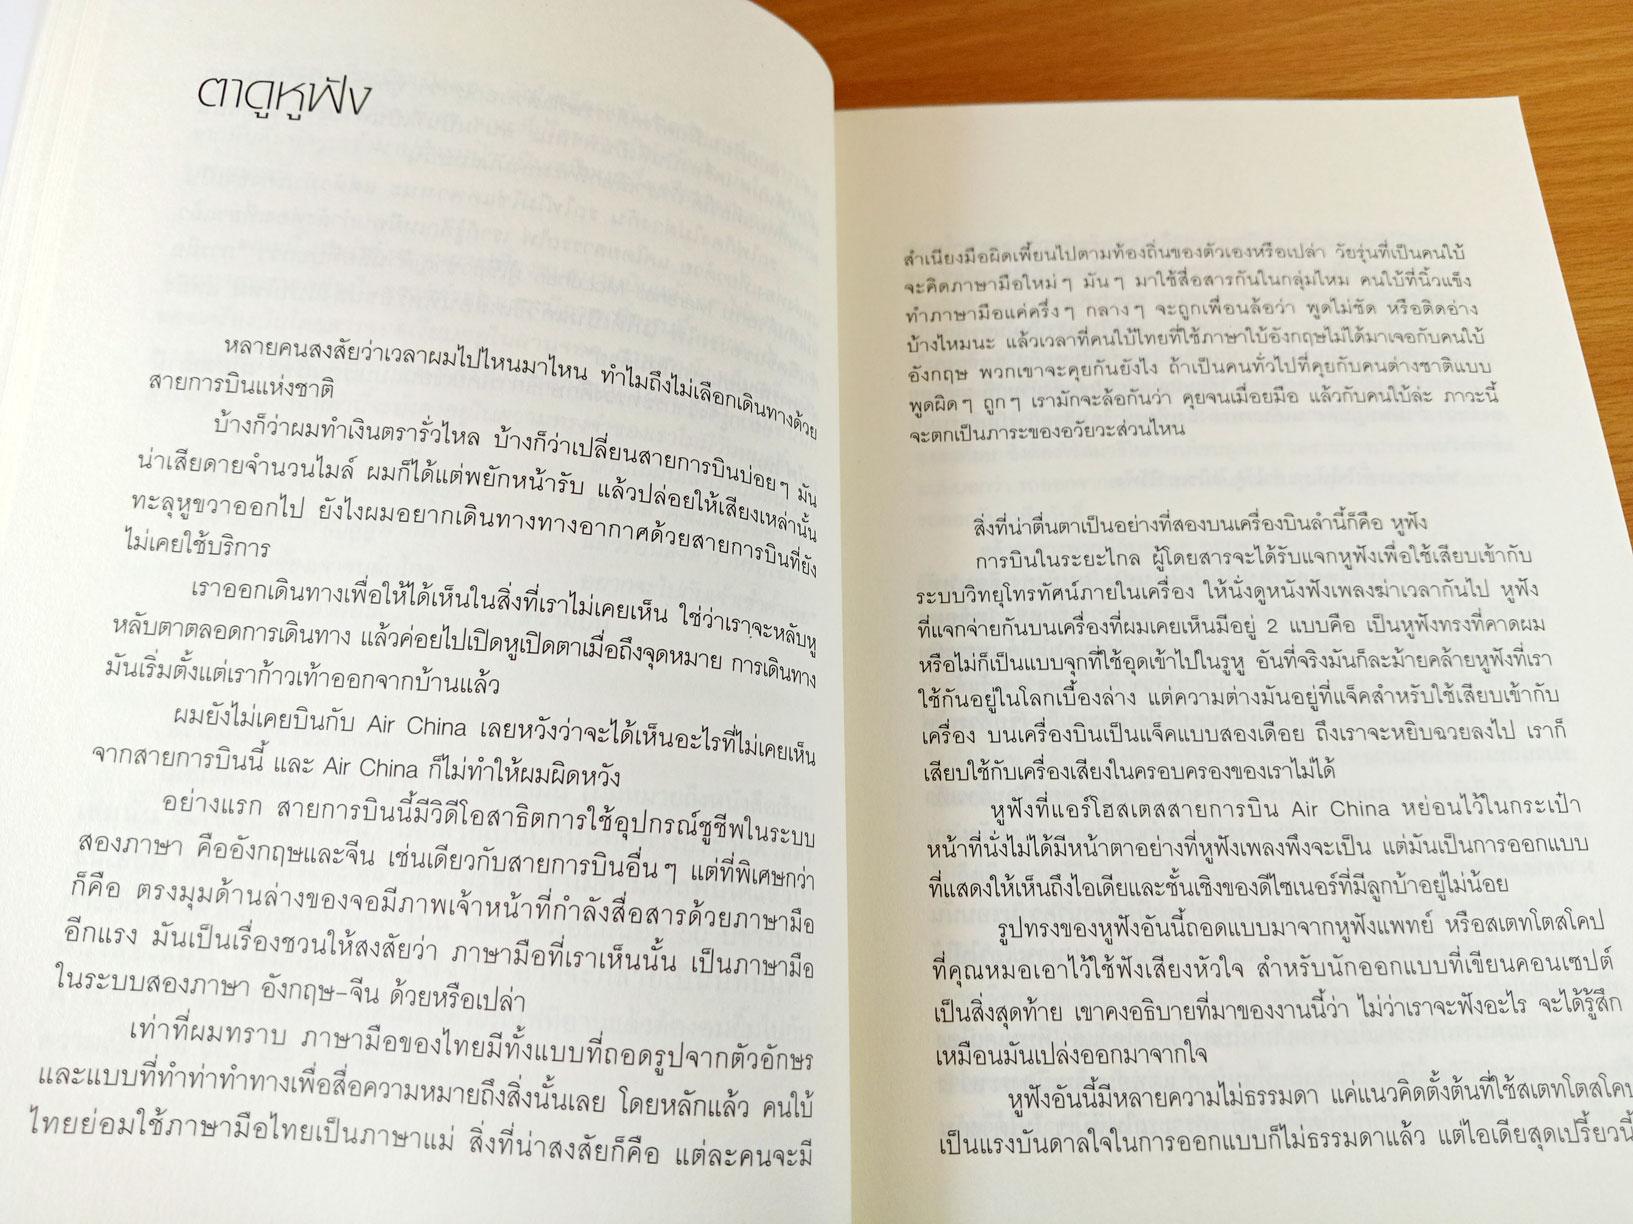 ตาดูหูฟัง
หลายคนสงสัยว่าเวลาผมไปไหนมาไหน ทำไมถึงไม่เลือกเดินทางด้วย
สายการบินแห่งชาติ
บ้างก็ว่าผมทำเงินตรารั่วไหล บ้างก็ว่าเปลี่ยนสายการบินบ่อยๆ มัน
น่าเสียดายจำนวนไมล์ ผมก็ได้แต่พยักหน้ารับ แล้วปล่อยให้เสียงเหล่านั้น
ทะลุหูขวาออกไป ยังไงผมอยากเดินทางทางอากาศด้วยสายการบินที่ยัง
ไม่เคยใช้บริการ
เราออกเดินทางเพื่อให้ได้เห็นในสิ่งที่เราไม่เคยเห็น ใช่ว่าเราจะหลับหู
หลับตาตลอดการเดินทาง แล้วค่อยไปเปิดหูเปิดตาเมื่อถึงจุดหมาย การเดินทาง
มันเริ่มตั้งแต่เราก้าวเท้าออกจากบ้านแล้ว
ผมยังไม่เคยบินกับ Air China เลยหวังว่าจะได้เห็นอะไรที่ไม่เคยเห็น
จากสายการบินนี้ และ Air China ก็ไม่ทำให้ผมผิดหวัง
อย่างแรก สายการบินนี้มีวิดีโอสาธิตการใช้อุปกรณ์ชูชีพในระบบ
สองภาษา คืออังกฤษและจีน เช่นเดียวกับสายการบินอื่นๆ แต่ที่พิเศษกว่า
ก็คือ ตรงมุมด้านล่างของจอมีภาพเจ้าหน้าที่กำลังสื่อสารด้วยภาษามือ
อีกแรง มันเป็นเรื่องชวนให้สงสัยว่า ภาษามือที่เราเห็นนั้น เป็นภาษามือ
ในระบบสองภาษา อังกฤษ-จีน ด้วยหรือเปล่า
เท่าที่ผมทราบ ภาษามือของไทยมีทั้งแบบที่ถอดรูปจากตัวอักษร
และแบบที่ทำท่าทำทางเพื่อสื่อความหมายถึงสิ่งนั้นเลย โดยหลักแล้ว คนใบ้
ไทยย่อมใช้ภาษามือไทยเป็นภาษาแม่ สิ่งที่น่าสงสัยก็คือ แต่ละคนจะมี
สำเนียงมือผิดเพี้ยนไปตามท้องถิ่นของตัวเองหรือเปล่า วัยรุ่นที่เป็นคนใบ้
จะคิดภาษามือใหม่ๆ มันๆ มาใช้สื่อสารกันในกลุ่มไหม คนใบ้ที่นิ้วแข็ง
ทำภาษามือแค่ครึ่งๆ กลางๆ จะถูกเพื่อนล้อว่า พูดไม่ชัด หรือติดอ่าง
บ้างไหมนะ แล้วเวลาที่คนใบ้ไทยที่ใช้ภาษาใบ้อังกฤษไม่ได้มาเจอกับคนใบ้
อังกฤษ พวกเขาจะคุยกันยังไง ถ้าเป็นคนทั่วไปที่คุยกับคนต่างชาติแบบ
พูดผิดๆ ถูกๆ เรามักจะล้อกันว่า คุยจนเมื่อยมือ แล้วกับคนใบ้ล่ะ ภาวะนี้
จะตกเป็นภาระของอวัยวะส่วนไหน
สิ่งที่น่าตื่นตาเป็นอย่างที่สองบนเครื่องบินลำนี้ก็คือ หูฟัง
การบินในระยะไกล ผู้โดยสารจะได้รับแจกหูฟังเพื่อใช้เสียบเข้ากับ
ระบบวิทยุโทรทัศน์ภายในเครื่อง ให้นั่งดูหนังฟังเพลงฆ่าเวลากันไป หูฟัง
ที่แจกจ่ายกันบนเครื่องที่ผมเคยเห็นมีอยู่ 2 แบบคือ เป็นหูฟังทรงที่คาดผม
หรือไม่ก็เป็นแบบจุกที่ใช้อุดเข้าไปในรูหู อันที่จริงมันก็ละม้ายคล้ายหูฟังที่เรา
ใช้กันอยู่ในโลกเบื้องล่าง แต่ความต่างมันอยู่ที่แจ็คสำหรับใช้เสียบเข้ากับ
เครื่อง บนเครื่องบินเป็นแจ็คแบบสองเดือย ถึงเราจะหยิบฉวยลงไป เราก็
เสียบใช้กับเครื่องเสียงในครอบครองของเราไม่ได้
หูฟังที่แอร์โฮสเตสสายการบิน Air China หย่อนไว้ในกระเป๋า
หน้าที่นั่งไม่ได้มีหน้าตาอย่างที่หูฟังเพลงพึงจะเป็น แต่มันเป็นการออกแบบ
ที่แสดงให้เห็นถึงไอเดียและชั้นเชิงของดีไซเนอร์ที่มีลูกบ้าอยู่ไม่น้อย
รูปทรงของหูฟังอันนี้ถอดแบบมาจากหูฟังแพทย์ หรือสเตทโตสโคป
ที่คุณหมอเอาไว้ใช้ฟังเสียงหัวใจ สำหรับนักออกแบบที่เขียนคอนเซปต์
เป็นสิ่งสุดท้าย เขาคงอธิบายที่มาของงานนี้ว่า ไม่ว่าเราจะฟังอะไร จะได้รู้สึก
เหมือนมันเปล่งออกมาจากใจ
หูฟังอันนี้มีหลายความไม่ธรรมดา แค่แนวคิดตั้งต้นที่ใช้สเตทโตสโคป
เป็นแรงบันดาลใจในการออกแบบก็ไม่ธรรมดาแล้ว แต่ไอเดียสุดเปรี้ยวนี้